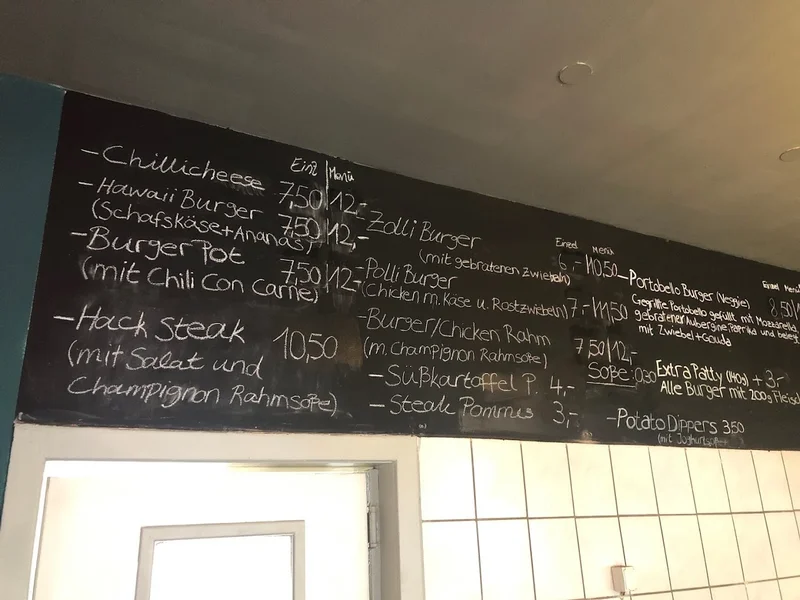 Einzl Menü
- Chillicheese 7,50 12,-
- Hawaii Burger 7,50 12,-
(Schafskäse+Ananas)
- Burger Pot 7,50 12,-
(mit Chili Con Carne)
- Hack Steak 10,50
(mit Salat und
Champignon Rahmsoße)
Einzel Menü
- Zolli Burger 6,- 10,50
(mit gebratenen Zwiebeln)
- Polli Burger 7,- 11,50
(Chicken m. Käse u. Röstzwiebeln)
- Burger/Chicken Rahm 7,50 12,-
(m. Champignon Rahmsoße)
Soße: 0,30
- Süßkartoffel P. 4,-
- Steak Pommes 3,-
Einzel Menü
- Portobello Burger (Veggie) 8,50
Gegrillte Portobello gefüllt mit Mozzarella,
gebratener Aubergine, Paprika und belegt
mit Zwiebel+Gouda
Extra Patty (140g) + 3,-
Alle Burger mit 200g Fleisch
- Potato Dippers 3,50
(mit Joghurtsoße)